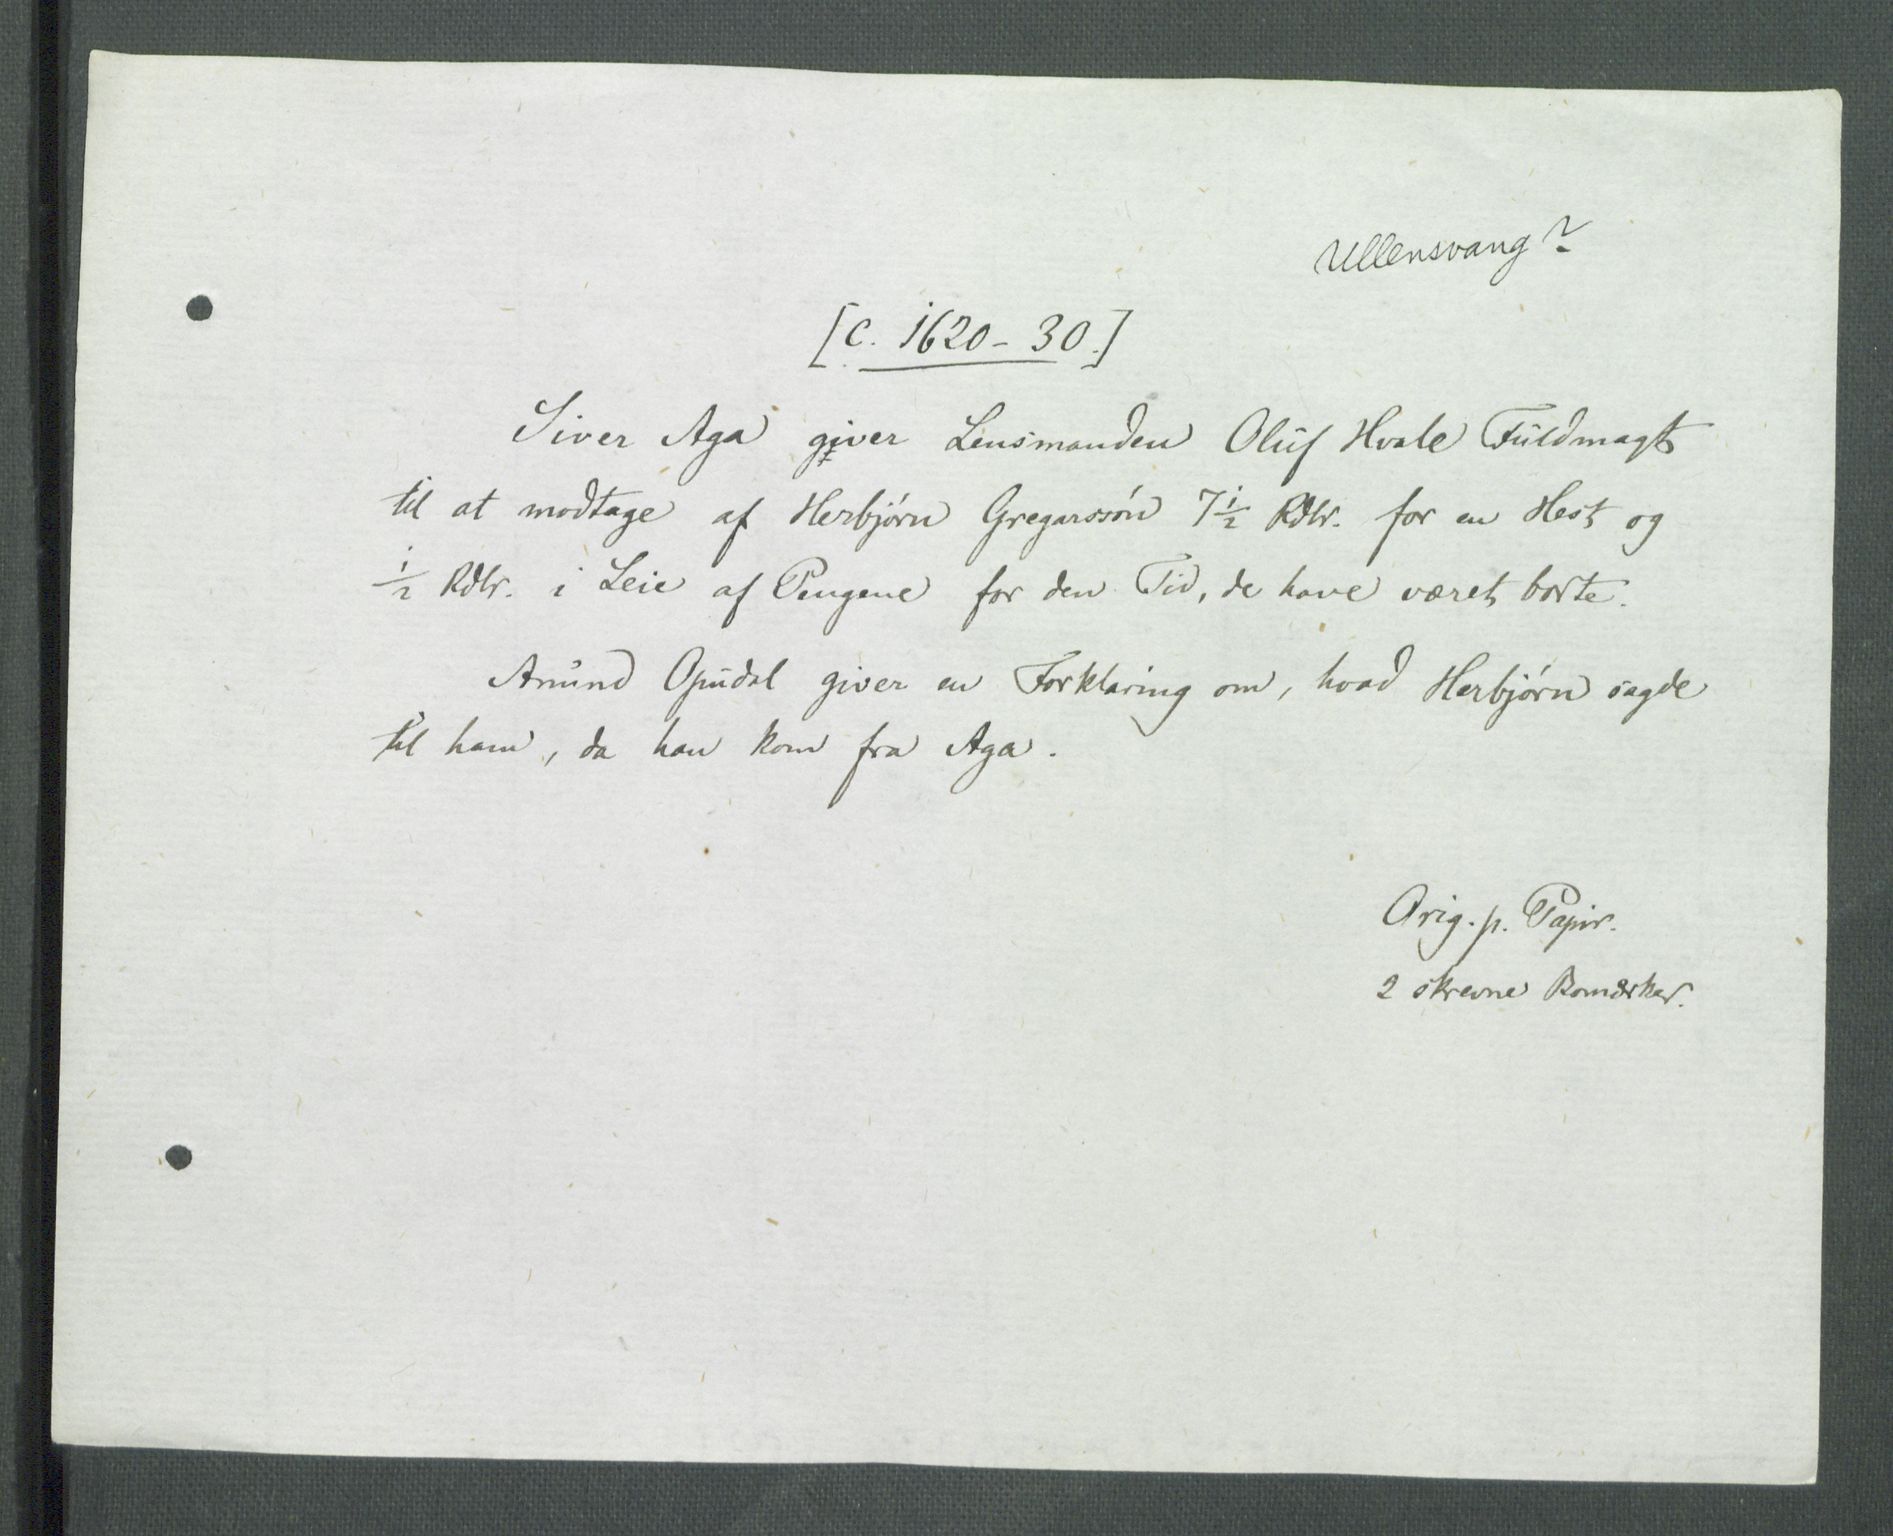 Ullensvang?
[c. 1620-30.]
Siver Aga giver Lensmanden Oluf Hvale Fuldmagt
til at modtage af Herbjørn Gregarssøn 7 1/2 Rdlr. for en Hest og
1/2 Rdlr. i Leie af Pengene for den Tid, de have været borte.
Amund Opudal giver en Forklaring om, hvad Herbjørn sagde
til ham, da han kom fra Aga.
Orig. p. Papir.
2 skrevne Bomærker.